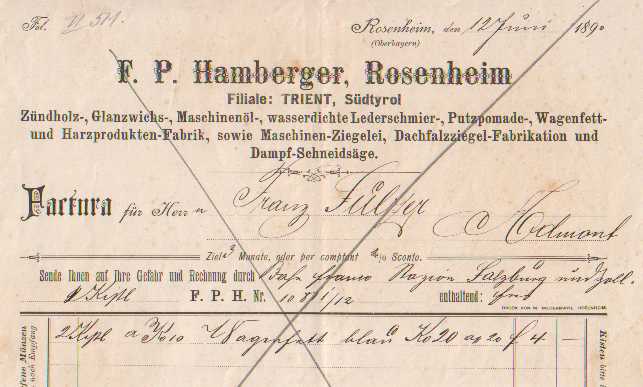 Fol. VI 511.
Rosenheim, den 12 Juni 1890
(Oberbayern)
F. P. Hamberger, Rosenheim
Filiale: TRIENT, Südtyrol
Zündholz-, Glanzwichs-, Maschinenöl-, wasserdichte Lederschmier-, Putzpomade-, Wagenfett-
und Harzprodukten-Fabrik, sowie Maschinen-Ziegelei, Dachfalzziegel-Fabrikation und
Dampf-Schneidsäge.
Factura für Herrn Franz Admont
Ziel 3 Monate, oder per comptant % Sconto.
Sende Ihnen auf Ihre Gefahr und Rechnung durch Bahn franco Salzburg und Zoll.
F. P. H. Nr. enthaltend:
2 Kistl a Ko 10 Wagenfett blau Ko 20 f 4 —